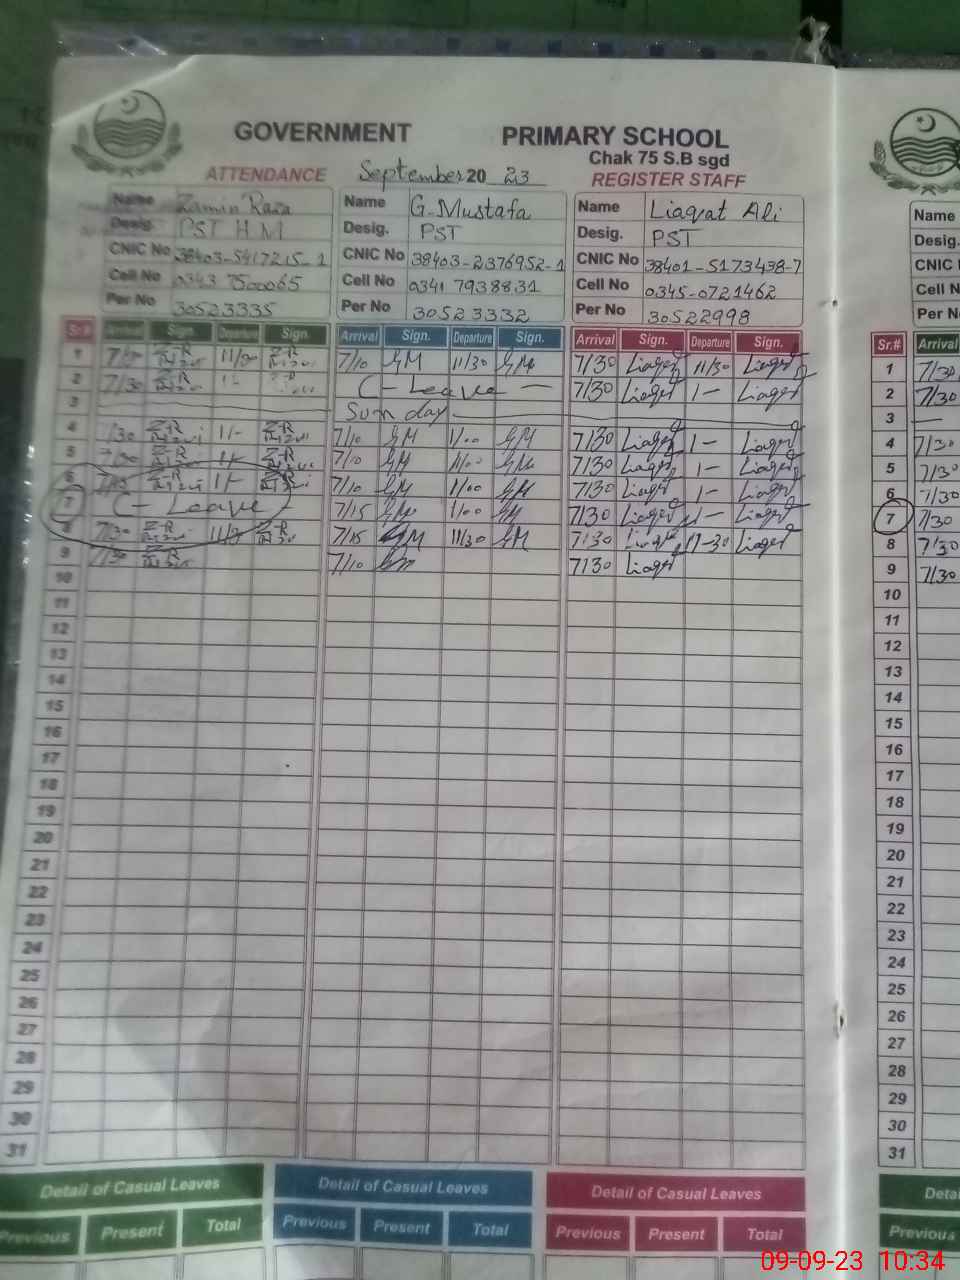 GOVERNMENT PRIMARY SCHOOL
Chak 75 S.B sgd
ATTENDANCE September 20 23 REGISTER STAFF
Name Zamin Raza Name G. Mustafa Name Liaqat Ali Name
Desig. PST H M Desig. PST Desig. PST Desig.
CNIC No 38403-5417215-1 CNIC No 38403-2376952-1 CNIC No 38401-5173438-7 CNIC
Cell No 0343 7500065 Cell No 0341 7938831 Cell No 0345-0721462 Cell N
Per No 30523335 Per No 30523332 Per No 30522998 Per No
Sr.# Arrival Sign. Departure Sign. Arrival Sign. Departure Sign. Arrival Sign. Departure Sign. Sr.# Arrival
1 Z-R 11/30 Z-R 7/10 GM 11/30 GM 7/30 Liaqat 11/30 Liaqat 1 7/30
2 7/30 Z-R 1- Z-R C-Leave — 7/30 Liaqat 1- Liaqat 2 7/30
3 Sunday 3 —
4 7/30 Z-R 1/- Z-R 7/10 GM 1/00 GM 7/30 Liaqat 1- Liaqat 4 7/30
5 7/30 Z-R Z-R 7/10 GM 1/00 GM 7/30 Liaqat 1- Liaqat 5 7/30
6 Z-R 1/- Z-R 7/10 GM 1/00 GM 7/30 Liaqat 1- Liaqat 6 7/30
7 C-Leave 7/15 GM 1/00 GM 7/30 Liaqat 1- Liaqat 7 7/30
8 7/30 Z-R Z-R 7/15 GM 11/30 GM 7/30 Liaqat 11-30 Liaqat 8 7/30
9 7/30 Z-R 7/10 GM 7/30 Liaqat 9 7/30
10 10
11 11
12 12
13 13
14 14
15 15
16 16
17 17
18 18
19 19
20 20
21 21
22 22
23 23
24 24
25 25
26 26
27 27
28 28
29 29
30 30
31 31
Detail of Casual Leaves Detail of Casual Leaves Detail of Casual Leaves Deta
Previous Present Total Previous Present Total Previous Present Total Previous
09-09-23 10:34